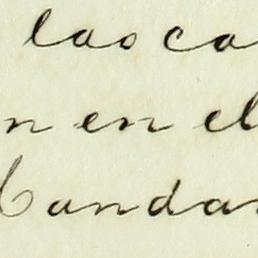 las ca
n en el
Candar